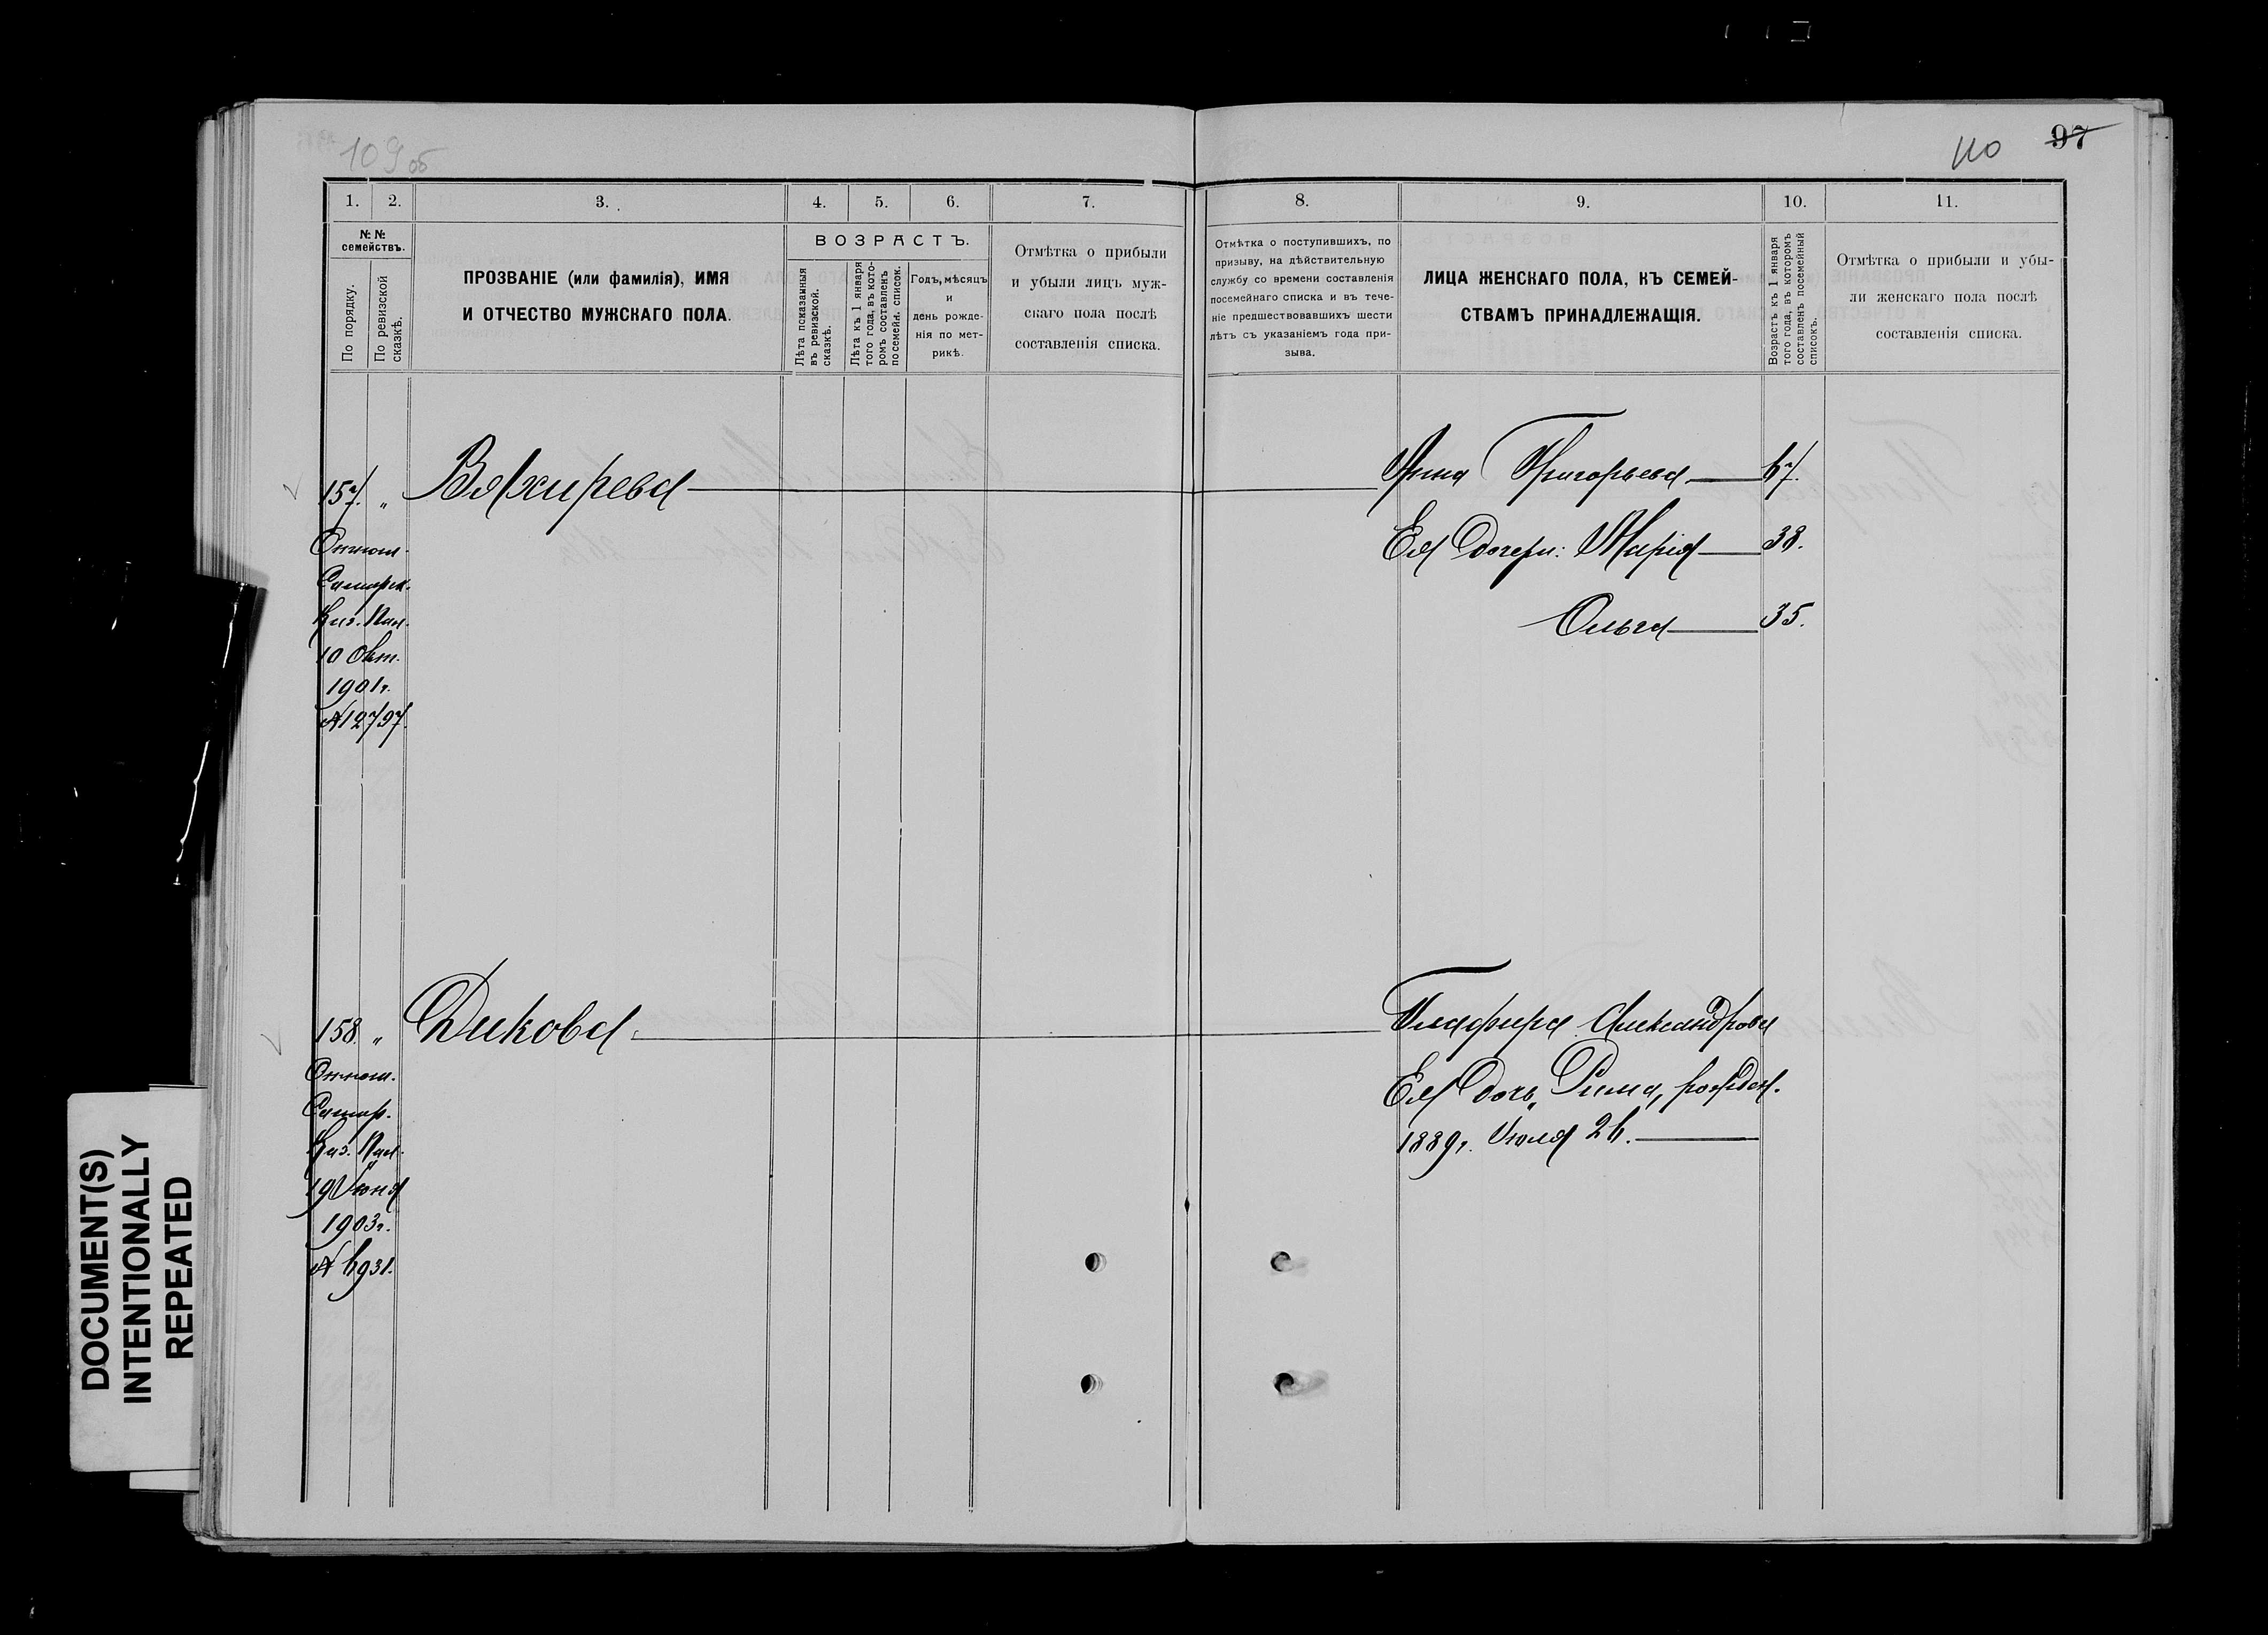 109 об
110 97
1. 2. 3. 4. 5. 6. 7. 8. 9. 10. 11.
№ №
семействъ.
По порядку.
По ревизской
сказкѣ.
ПРОЗВАНІЕ (или фамилія), ИМЯ
И ОТЧЕСТВО МУЖСКАГО ПОЛА.
ВОЗРАСТЪ.
Лѣта показанныя
въ ревизской.
сказкѣ.
Лѣта къ 1 января
того года, въ кото-
ромъ составленъ
посемейн. список.
Годъ, мѣсяцъ
и
день рожде-
нія по мет-
рикѣ.
Отмѣтка о прибыли
и убыли лицъ муж-
скаго пола послѣ
составленія списка.
Отмѣтка о поступившихъ, по
призыву, на дѣйствительную
службу со времени составленія
посемейнаго списка и въ тече-
ніе предшествовавшихъ шести
лѣтъ съ указаніемъ года при-
зыва.
ЛИЦА ЖЕНСКАГО ПОЛА, КЪ СЕМЕЙ-
СТВАМЪ ПРИНАДЛЕЖАЩІЯ.
Возрастъ къ 1 января
того года, въ которомъ
составленъ посемейный
списокъ.
Отмѣтка о прибыли и убы-
ли женскаго пола послѣ
составленія списка.
157. „ Вяхирева Анна Григорьева 67.
Ея дочери: Марія 38.
Ольга 35.
Отнош.
Самарск.
Каз. Пал.
10 Окт.
1901г.
№12797.
158 „ Дикова Глафира Александрова
Ея дочь „Рима, рожден.
1889г. Іюля 26.
Отнош.
Самар.
Каз. Пал.
19 Іюня
1903г.
№ 6931.
DOCUMENT(S)
INTENTIONALLY
REPEATED